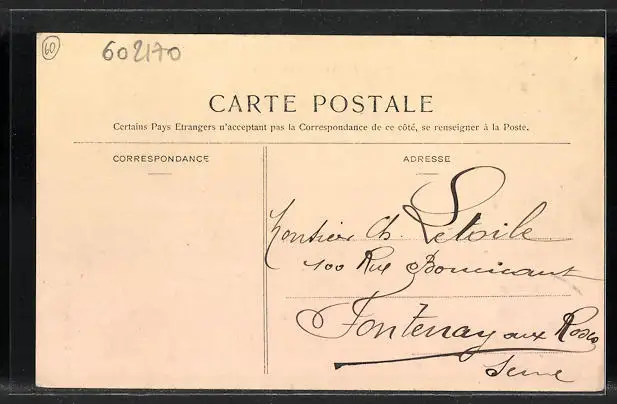 60
602170
CARTE POSTALE
Certains Pays Etrangers n'acceptant pas la Correspondance de ce côté, se renseigner à la Poste.
CORRESPONDANCE
ADRESSE
Monsieur Ch. Letoile
100 Rue Boucicaut
Fontenay aux Roses
Seine